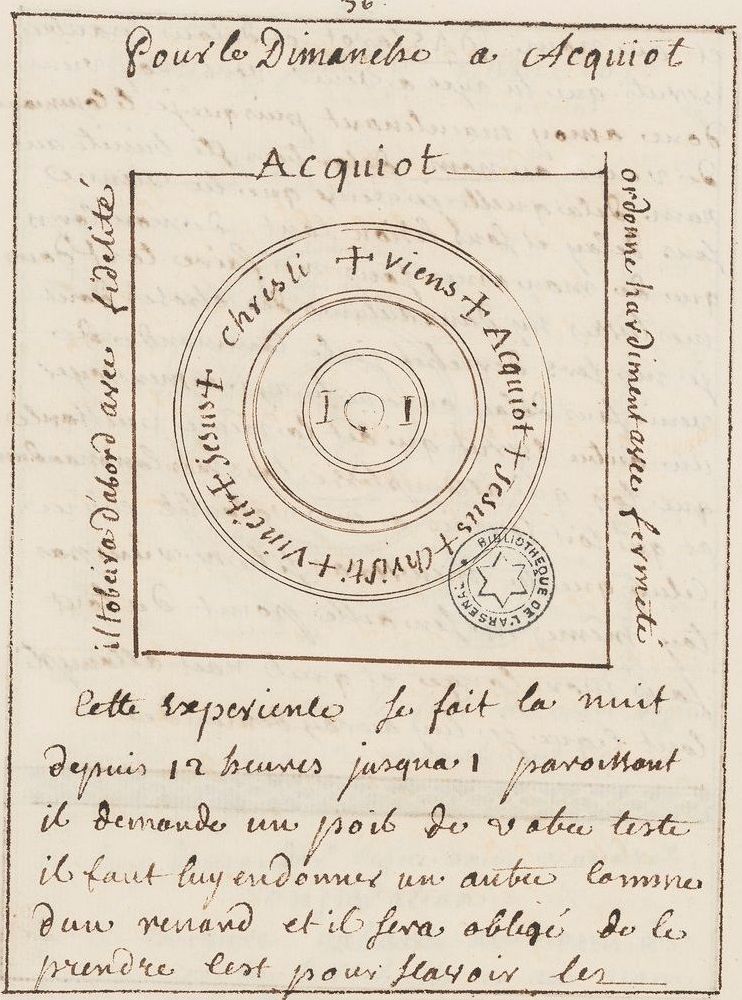 56.
Pour le Dimanche a Acquiot
Acquiot
il tobeira d'abord avec fidelité
ordonne hardiment avec fermeté
+ viens + Acquiot + Jesus + Christi + Vincit + Jesus + christi
I I
BIBLIOTHEQUE DE L'ARSENAL
Cette experience se fait la nuit
depuis 12 heures jusqua 1 paroissant
il demande un poil de votre teste
il faut luy en donner un autre comme
dun renard et il sera obligé de le
prendre cest pour scavoir les